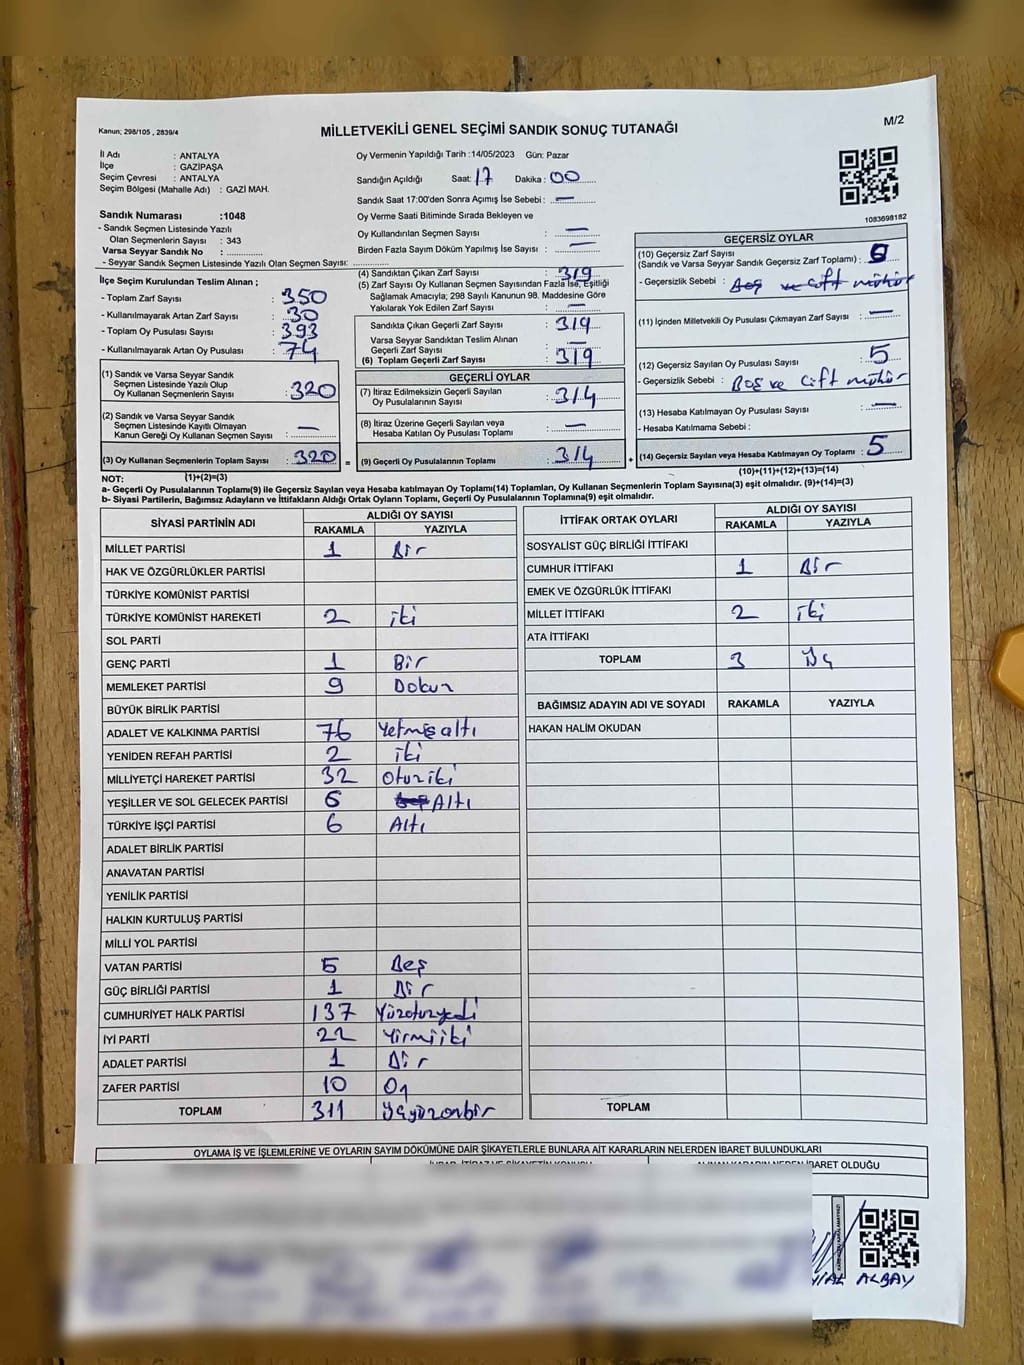 Kanun; 298/105 , 2839/4
MİLLETVEKİLİ GENEL SEÇİMİ SANDIK SONUÇ TUTANAĞI
M/2
İl Adı : ANTALYA
İlçe : GAZİPAŞA
Seçim Çevresi : ANTALYA
Seçim Bölgesi (Mahalle Adı) : GAZİ MAH.
Sandık Numarası :1048
- Sandık Seçmen Listesinde Yazılı
Olan Seçmenlerin Sayısı : 343
Varsa Seyyar Sandık No :
- Seyyar Sandık Seçmen Listesinde Yazılı Olan Seçmen Sayısı:
Oy Vermenin Yapıldığı Tarih :14/05/2023 Gün: Pazar
Sandığın Açıldığı Saat: 17 Dakika : 00
Sandık Saat 17:00'den Sonra Açımış İse Sebebi : —
Oy Verme Saati Bitiminde Sırada Bekleyen ve
Oy Kullandırılan Seçmen Sayısı : —
Birden Fazla Sayım Döküm Yapılmış İse Sayısı : —
1083698182
İlçe Seçim Kurulundan Teslim Alınan ;
- Toplam Zarf Sayısı : 350
- Kullanılmayarak Artan Zarf Sayısı : 30
- Toplam Oy Pusulası Sayısı : 393
- Kullanılmayarak Artan Oy Pusulası : 74
(1) Sandık ve Varsa Seyyar Sandık
Seçmen Listesinde Yazılı Olup
Oy Kullanan Seçmenlerin Sayısı : 320
(2) Sandık ve Varsa Seyyar Sandık
Seçmen Listesinde Kayıtlı Olmayan
Kanun Gereği Oy Kullanan Seçmen Sayısı : —
(3) Oy Kullanan Seçmenlerin Toplam Sayısı : 320 =
(1)+(2)=(3)
(4) Sandıktan Çıkan Zarf Sayısı : 319
(5) Zarf Sayısı Oy Kullanan Seçmen Sayısından Fazla İse, Eşitliği
Sağlamak Amacıyla; 298 Sayılı Kanunun 98. Maddesine Göre
Yakılarak Yok Edilen Zarf Sayısı : —
Sandıkta Çıkan Geçerli Zarf Sayısı : 319
Varsa Seyyar Sandıktan Teslim Alınan
Geçerli Zarf Sayısı : —
(6) Toplam Geçerli Zarf Sayısı : 319
GEÇERLİ OYLAR
(7) İtiraz Edilmeksizin Geçerli Sayılan
Oy Pusulalarının Sayısı : 314
(8) İtiraz Üzerine Geçerli Sayılan veya
Hesaba Katılan Oy Pusulası Toplamı : —
(9) Geçerli Oy Pusulalarının Toplamı : 314 +
GEÇERSİZ OYLAR
(10) Geçersiz Zarf Sayısı
(Sandık ve Varsa Seyyar Sandık Geçersiz Zarf Toplamı) :
- Geçersizlik Sebebi : Boş ve çift mühür
(11) İçinden Milletvekili Oy Pusulası Çıkmayan Zarf Sayısı : —
(12) Geçersiz Sayılan Oy Pusulası Sayısı : 5
- Geçersizlik Sebebi : Boş ve çift mühür
(13) Hesaba Katılmayan Oy Pusulası Sayısı : —
- Hesaba Katılmama Sebebi :
(14) Geçersiz Sayılan veya Hesaba Katılmayan Oy Toplamı : 5
(10)+(11)+(12)+(13)=(14)
NOT:
a- Geçerli Oy Pusulasının Toplamı(9) ile Geçersiz Sayılan veya Hesaba katılmayan Oy Toplamı(14) Toplamları, Oy Kullanan Seçmenlerin Toplam Sayısına(3) eşit olmalıdır. (9)+(14)=(3)
b- Siyasi Partilerin, Bağımsız Adayların ve İttifakların Aldığı Ortak Oyların Toplamı, Geçerli Oy Pusulalarının Toplamına(9) eşit olmalıdır.
SİYASİ PARTİNİN ADI ALDIĞI OY SAYISI
RAKAMLA YAZIYLA
MİLLET PARTİSİ 1 Bir
HAK VE ÖZGÜRLÜKLER PARTİSİ
TÜRKİYE KOMÜNİST PARTİSİ
TÜRKİYE KOMÜNİST HAREKETİ 2 iki
SOL PARTİ
GENÇ PARTİ 1 Bir
MEMLEKET PARTİSİ 9 Dokuz
BÜYÜK BİRLİK PARTİSİ
ADALET VE KALKINMA PARTİSİ 76 Yetmişaltı
YENİDEN REFAH PARTİSİ 2 iki
MİLLİYETÇİ HAREKET PARTİSİ 32 Otuziki
YEŞİLLER VE SOL GELECEK PARTİSİ 6 Altı
TÜRKİYE İŞÇİ PARTİSİ 6 Altı
ADALET BİRLİK PARTİSİ
ANAVATAN PARTİSİ
YENİLİK PARTİSİ
HALKIN KURTULUŞ PARTİSİ
MİLLİ YOL PARTİSİ
VATAN PARTİSİ 5 Beş
GÜÇ BİRLİĞİ PARTİSİ 1 Bir
CUMHURİYET HALK PARTİSİ 137 Yüzotuzyedi
İYİ PARTİ 22 Yirmiiki
ADALET PARTİSİ 1 Bir
ZAFER PARTİSİ 10 On
TOPLAM 311 Üçyüzonbir
İTTİFAK ORTAK OYLARI ALDIĞI OY SAYISI
RAKAMLA YAZIYLA
SOSYALİST GÜÇ BİRLİĞİ İTTİFAKI
CUMHUR İTTİFAKI 1 Bir
EMEK VE ÖZGÜRLÜK İTTİFAKI
MİLLET İTTİFAKI 2 iki
ATA İTTİFAKI
TOPLAM 3 Üç
BAĞIMSIZ ADAYIN ADI VE SOYADI RAKAMLA YAZIYLA
HAKAN HALİM OKUDAN
TOPLAM
OYLAMA İŞ VE İŞLEMLERİNE VE OYLARIN SAYIM DÖKÜMÜNE DAİR ŞİKAYETLERLE BUNLARA AİT KARARLARIN NELERDEN İBARET BULUNDUKLARI
İBARET OLDUĞU
ALBAY